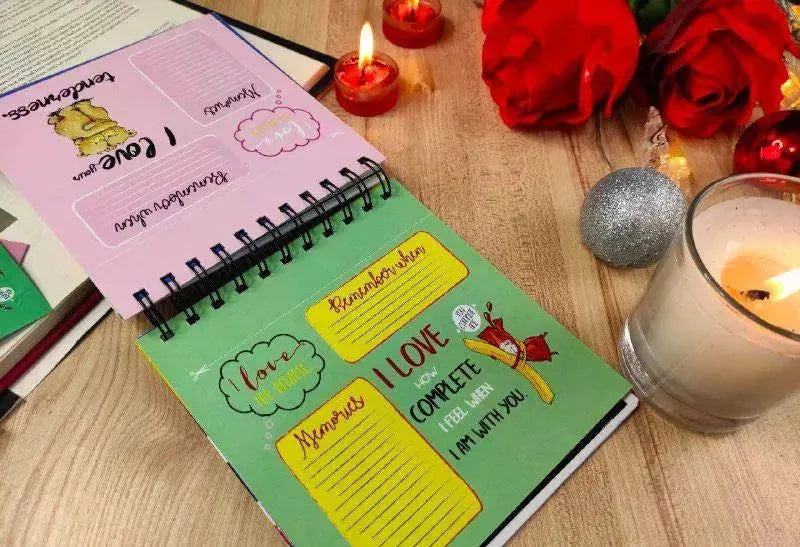 tenderness.
I love your
Memories
I love
Remember when
Remember when
I love
YOU BECAUSE...
I LOVE
HOW
COMPLETE
I FEEL WHEN
I AM WITH YOU.
YOU
COMPLETE
ME
Memories